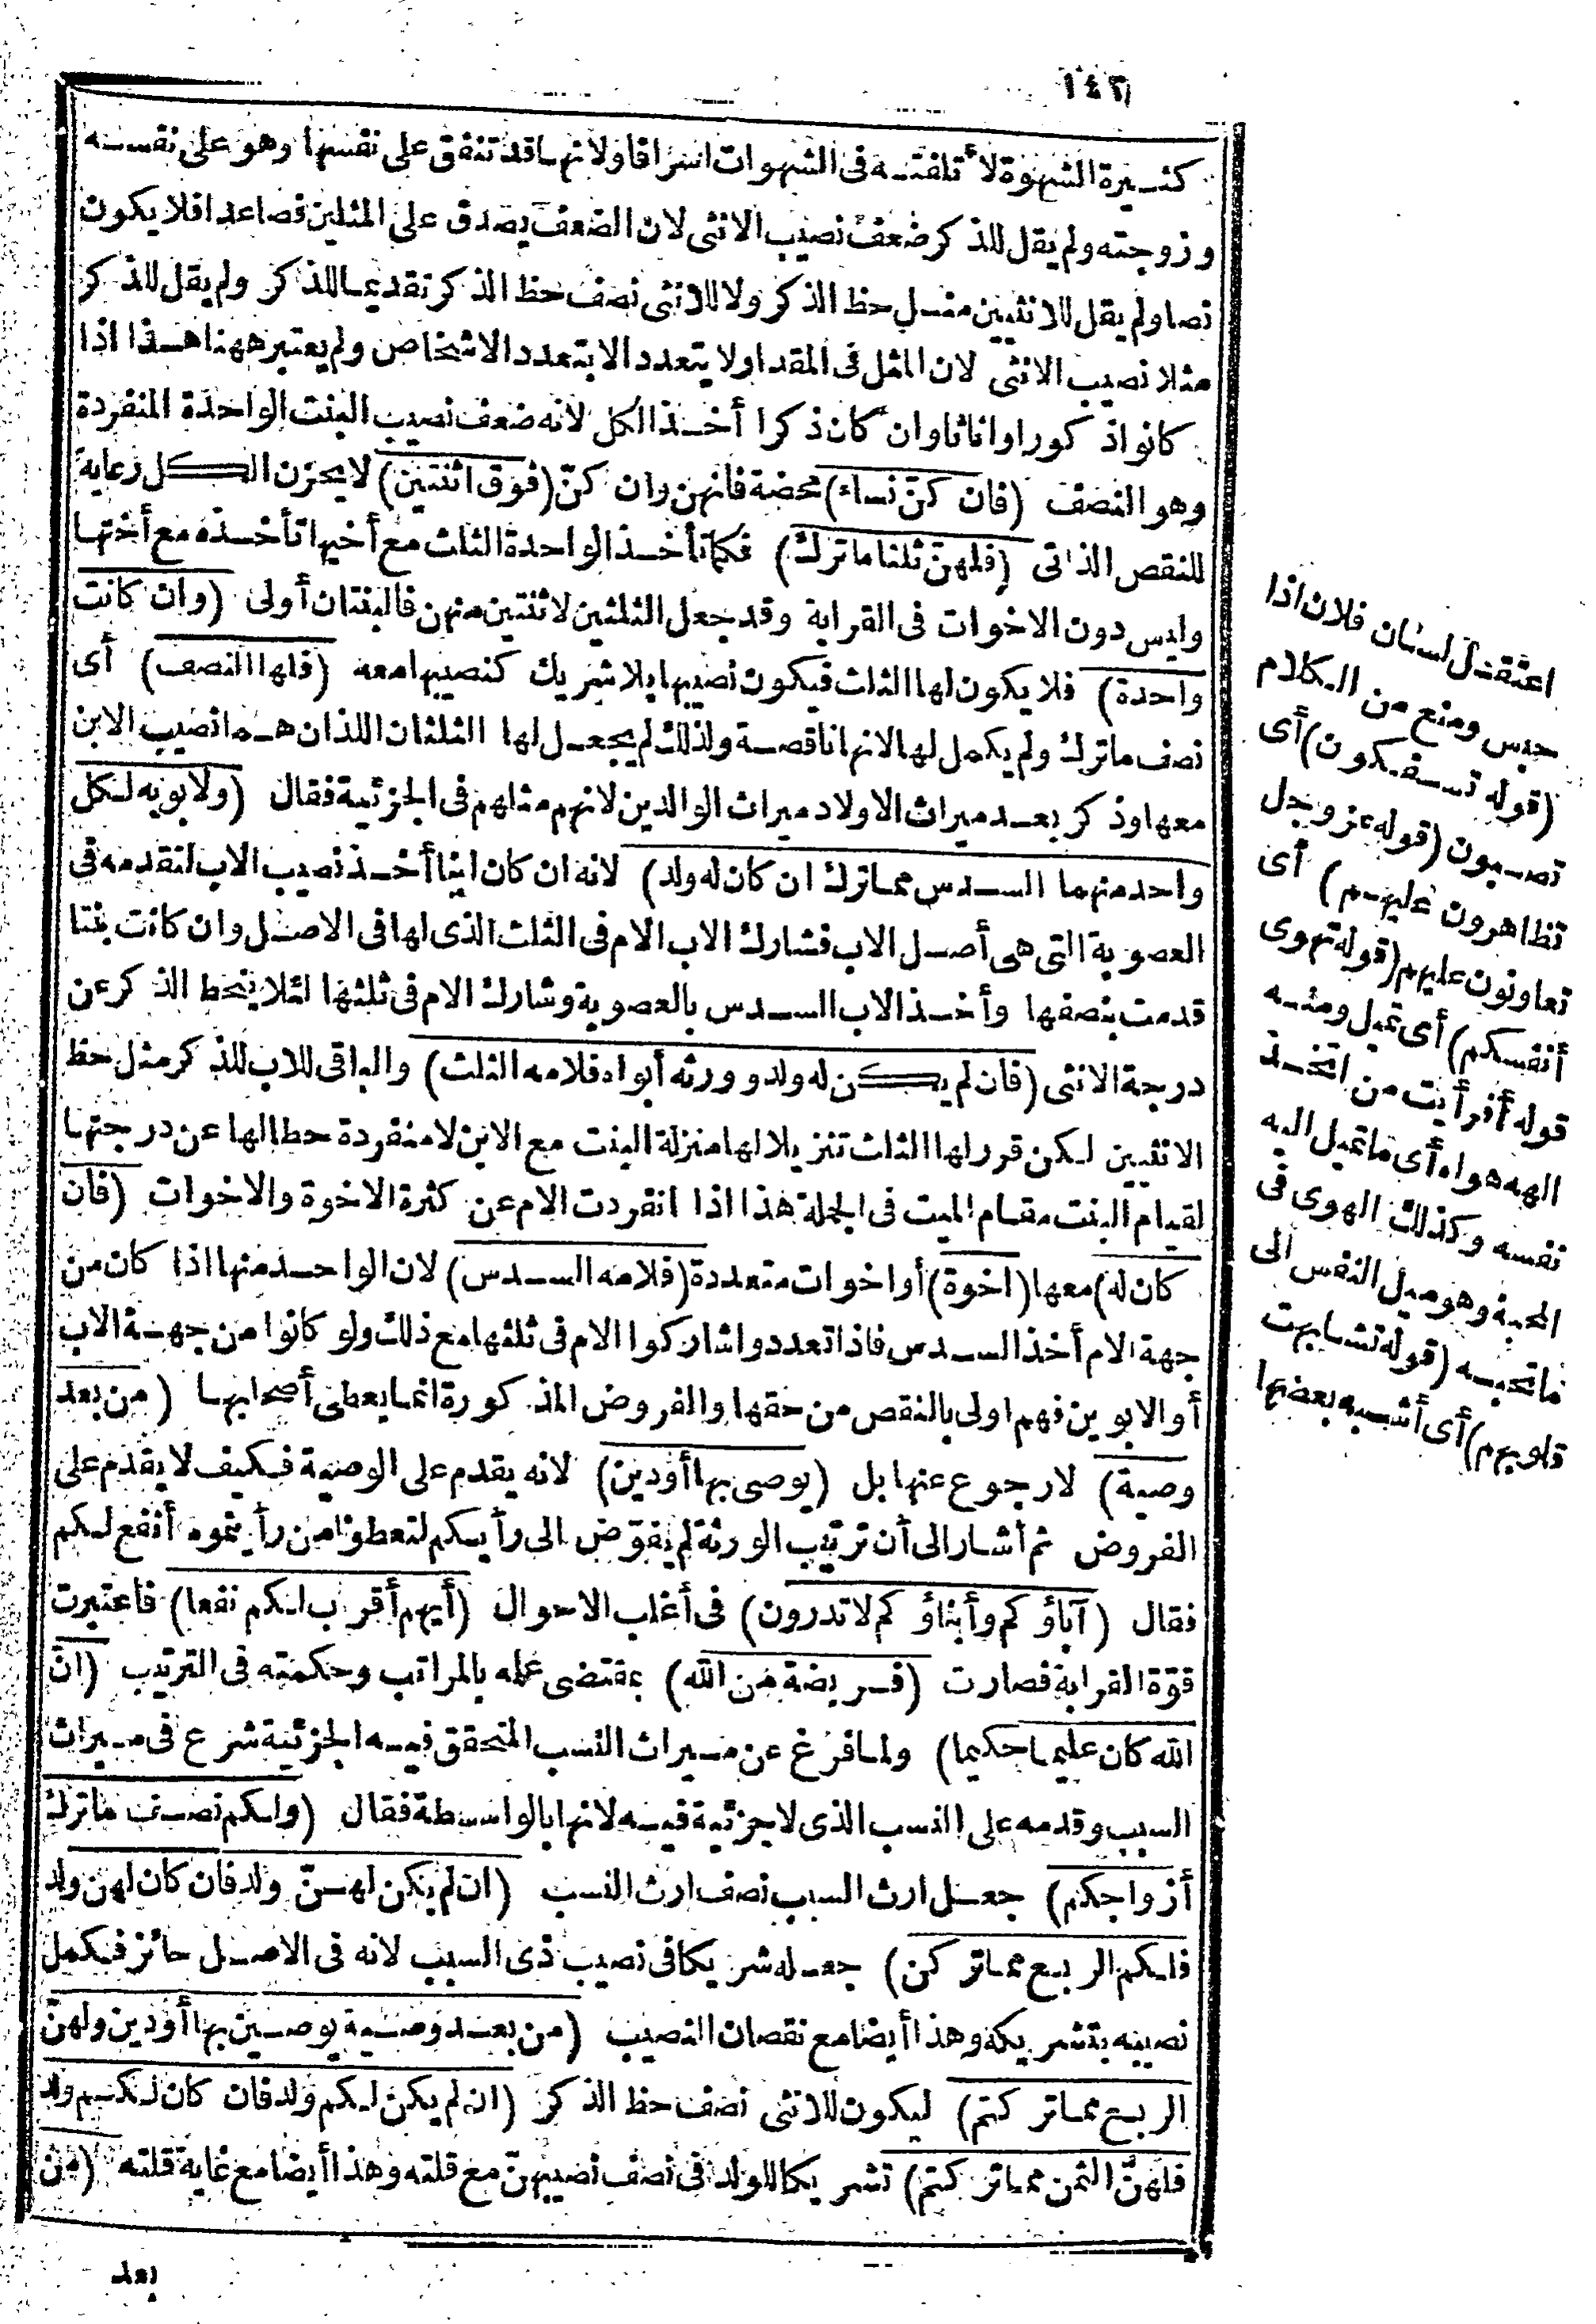 ١٤٢
كثيرة الشهوة لأتلفته فى الشهوات اسرافا ولانها قد تنفق على نفسها وهو على نفسه
وزوجته ولم يقل للذكر ضعف نصيب الانثى لان الضعف يصدق على المثلين فصاعدا فلا يكون
نصا ولم يقل للانثيين مثل حظ الذكر ولا للانثى نصف حظ الذكر تقديما للذكر ولم يقل للذكر
مثلا نصيب الانثى لان المثل فى المقدار لا يتعدد الا بتعدد الاشخاص ولم يعتبر ههنا هذا اذا
كانوا ذكورا واناثا وان كان ذكرا أخذ الكل لانه ضعف نصيب البنت الواحدة المنفردة
وهو النصف (فان كنّ نساء) محضة فانهن وان كنّ (فوق اثنتين) لا يحزن الكل رعاية
للنقص الذاتى (فلهنّ ثلثا ما ترك) فكما تأخذ الواحدة الثلث مع أخيها تأخذه مع أختها
وليس دون الاخوات فى القرابة وقد جعل الثلثين لاثنتين منهن فالبنتان أولى (وان كانت
واحدة) فلا يكون لها الثلث فيكون نصيبها بلا شريك كنصيبها معه (فلها النصف) أى
نصف ما ترك ولم يكمل لها لانها ناقصة ولذلك لم يجعل لها الثلثان اللذان هما نصيب الابن
معها وذكر بعد ميراث الاولاد ميراث الوالدين لانهم مثلهم فى الجزئية فقال (ولابويه لكل
واحد منهما السدس مما ترك ان كان له ولد) لانه ان كان ابنا أخذ نصيب الاب لتقدمه فى
العصوبة التى هى أصل الاب فشارك الاب الام فى الثلث الذى لها فى الاصل وان كانت بنتا
قدمت بنصفها وأخذ الاب السدس بالعصوبة وشارك الام فى ثلثها لئلا ينحط الذكر عن
درجة الانثى (فان لم يكن له ولد وورثه أبواه فلامه الثلث) والباقى للاب للذكر مثل حظ
الانثيين لكن قرر لها الثلث تنزيلا لها منزلة البنت مع الابن لا منفردة حطا لها عن درجتها
لقيام البنت مقام الميت فى الجملة هذا اذا انفردت الام عن كثرة الاخوة والاخوات (فان
كان له) معها (اخوة) أو اخوات متعددة (فلامه السدس) لان الواحد منها اذا كان من
جهة الام أخذ السدس فاذا تعددوا شاركوا الام فى ثلثها مع ذلك ولو كانوا من جهة الاب
أو الابوين فهم اولى بالنقص من حقها والفروض المذكورة انما يعطى أصحابها (من بعد
وصية) لا رجوع عنها بل (يوصى بها أو دين) لانه يقدم على الوصية فكيف لا يقدم على
الفروض ثم أشار الى أن ترتيب الورثة لم يفوّض الى رأيكم لتعطوا من رأيتموه أنفع لكم
فقال (آباؤكم وأبناؤكم لا تدرون) فى أغلب الاحوال (أيهم أقرب لكم نفعا) فاعتبرت
قوّة القرابة فصارت (فريضة من الله) بمقتضى علمه بالمراتب وحكمته فى الترتيب (انّ
الله كان عليما حكيما) ولما فرغ عن ميراث النسب المتحقق فيه الجزئية شرع فى ميراث
السبب وقدمه على النسب الذى لا جزئية فيه لانها بالواسطة فقال (ولكم نصف ما ترك
أزواجكم) جعل ارث السبب نصف ارث النسب (ان لم يكن لهنّ ولد فان كان لهن ولد
فلكم الربع مما تركن) جعله شريكا فى نصيب ذى السبب لانه فى الاصل حائز فيكمل
نصيبه بتشريكه وهذا أيضا مع نقصان النصيب (من بعد وصية يوصين بها أو دين ولهنّ
الربع مما تركتم) ليكون للانثى نصف حظ الذكر (ان لم يكن لكم ولد فان كان لكم ولد
فلهنّ الثمن مما تركتم) تشريكا للولد فى نصف نصيبهنّ مع قلته وهذا أيضا مع غاية قلته (من
بعد
اعتقل لسان فلان اذا
حبس ومنع من الكلام
(قوله تسفكون) أى
تصبون (قوله عز وجل
تظاهرون عليهم) أى
تعاونون عليهم (قوله تهوى
أنفسكم) أى تميل ومنه
قوله أفرأيت من اتخذ
الهه هواه أى ما تميل اليه
نفسه وكذلك الهوى فى
المحبة وهو ميل النفس الى
ما تحبه (قوله تشابهت
قلوبهم) أى أشبه بعضها